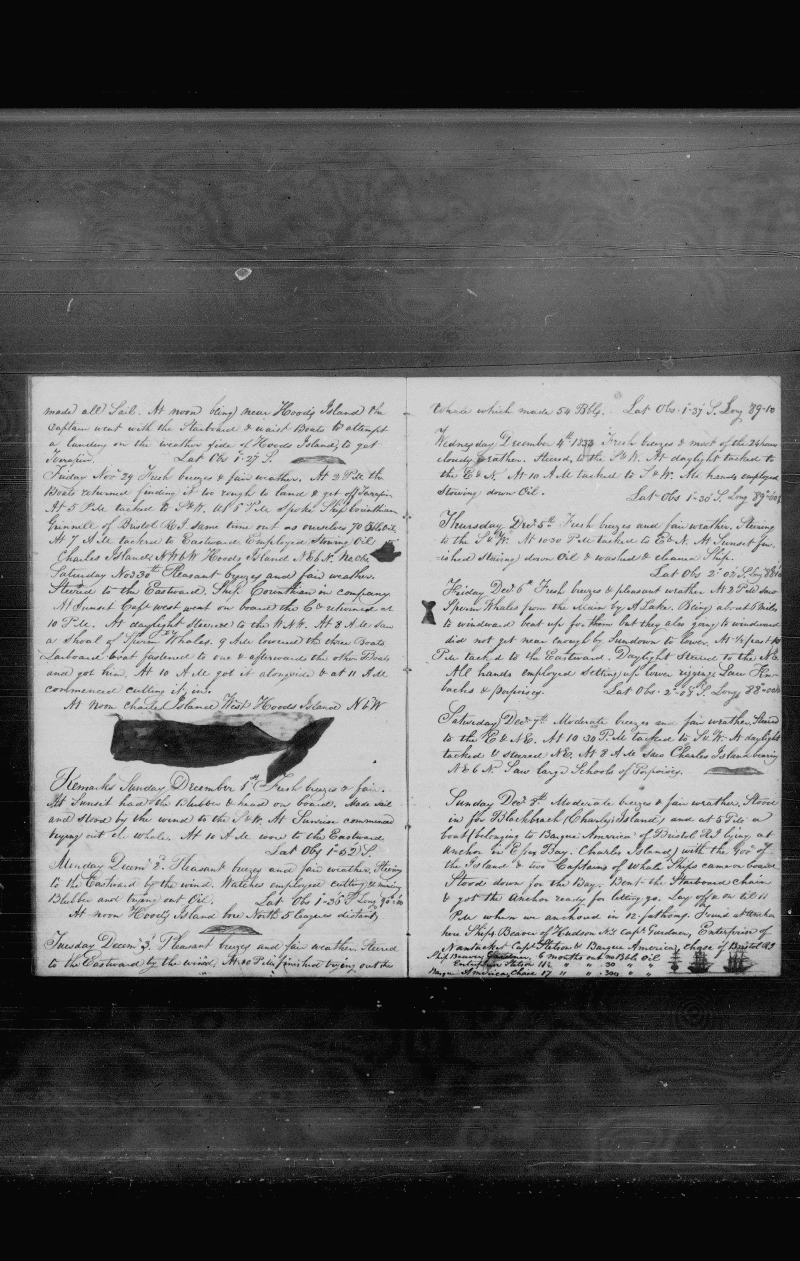 made all Sail. At noon being near Hoods Island the
Captain went with the Starboard & waist Boats to attempt
a landing on the weather side of Hoods Island, to get
Terapin. Lat Obs 1-27 S.
Friday Nov 29 Fresh breezes & fair weather. At 2 P.M the
Boats returned finding it to rough to land & get off Terapin
At 5 P.M tacked to S&W. At 5 P.M spoke Ship Corinthian
Grinnell of Bristol R.I same time out as ourselves, 70 Bbls Oil
At 7 A.M tacked to Eastward Employed Stowing Oil
Charles Island NWbW Hoods Island NEbN. No Obs
Saturday Nov 30th Pleasant breezes and fair weather.
Steered to the Eastward. Ship Corinthian in company.
At Sunset Capt west went on board the C & returned at
10 P.M. At daylight Steered to the W.N.W. At 8 A.M saw
a Shoal of Sperm Whales. 9 A.M lowered the three Boats
Larboard boat fastened to one & afterwards the other Boats
and got him. At 10 A.M got it alongside & at 11 A.M
commenced cutting it in.
At noon Charles Island West Hoods Island NbW
Remarks Sunday December 1st Fresh breezes & fair.
At Sunset had the Blubber & head on board. Made sail
and stood by the wind to the S&W. At Sunrise commenced
trying out the whale. At 10 A.M wore to the Eastward
Lat Obs 1-52 S.
Monday Decem 2. Pleasant breezes and fair weather. Steering
to the Eastward by the wind. Watches employed cutting & mincing
Blubber and trying out Oil. Lat Obs 1-36 S Long 90
At noon Hoods Island bore North 5 leagues distant
Tuesday Decem 3. Pleasant breezes and fair weather. Steered
to the Eastward by the wind. At 10 P.M finished trying out the
whale which made 54 Bbls. Lat Obs 1-37 S. Long 89-10
Wednesday December 4th 1833 Fresh breezes & most of the 24 hours
cloudy weather. Steered to the S&W. At daylight tacked to
the E&N. At 10 A.M tacked to S&W. All hands employed
Stowing down Oil. Lat Obs 1-30 S. Long 89
Thursday Dec 5th Fresh breezes and fair weather. Steering
to the S&W. At 10 30 P.M tacked to E&N. At Sunset fin
ished stowing down Oil & washed & cleaned Ship.
Lat Obs 2-02 S. Long 88
Friday Dec 6th Fresh breezes & pleasant weather. At 2 P.M saw
Sperm Whales from the Main by A Lake. Being about 5 miles
to windward beat up for them but they also going to windward
did not get near enough by Sundown to lower. At ½ past 10
P.M tacked to the Eastward. Daylight Steered to the NE.
All hands employed Setting up lower rigging Saw Hum
backs & porpoises. Lat Obs 2-08 S. Long 88
Saturday Dec 7th Moderate breezes and fair weather. Steered
to the E & NE. At 10 30 P.M tacked to S&W. At daylight
tacked & steered NE. At 8 A.M Saw Charles Island bearing
NEbN. Saw large Schools of Porpoises.
Sunday Dec 8th Moderate breezes & fair weather. Stood
in for Blackbeach (Charles Island) and at 5 P.M a
boat (belonging to Barque America of Bristol R.I lying at
anchor in E Bay. Charles Island) with the Gov of
the Island & two Captains of Whale Ships came on board
Stood down for the Bay. Bent the Starboard Chain
& got the Anchor ready for letting go. Lay off & on til 11
P.M when we anchored in 12 fathoms. Found at Anchor
here Ships Beaver of Hudson N.Y Capt Gardner, Enterprise of
Nantucket Capt Station & Barque America, Chase of Bristol R.I
Ship Beaver, Gardner, 6 months out no Bbls Oil
Enterprise Station 11½ " " 30 " "
Barque America, Chase 17 " " 300 " "